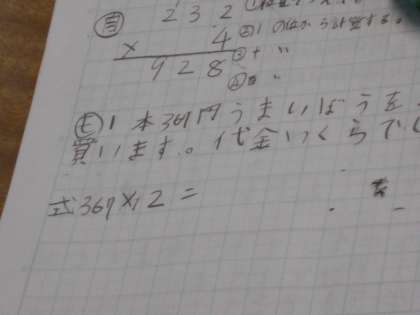 考 232
② 1の位から計算する。
× 4
③ 十 〃
928
④ 百 〃
も 1本367円うまいぼうを
買います。代金いくらでし
式367×12=